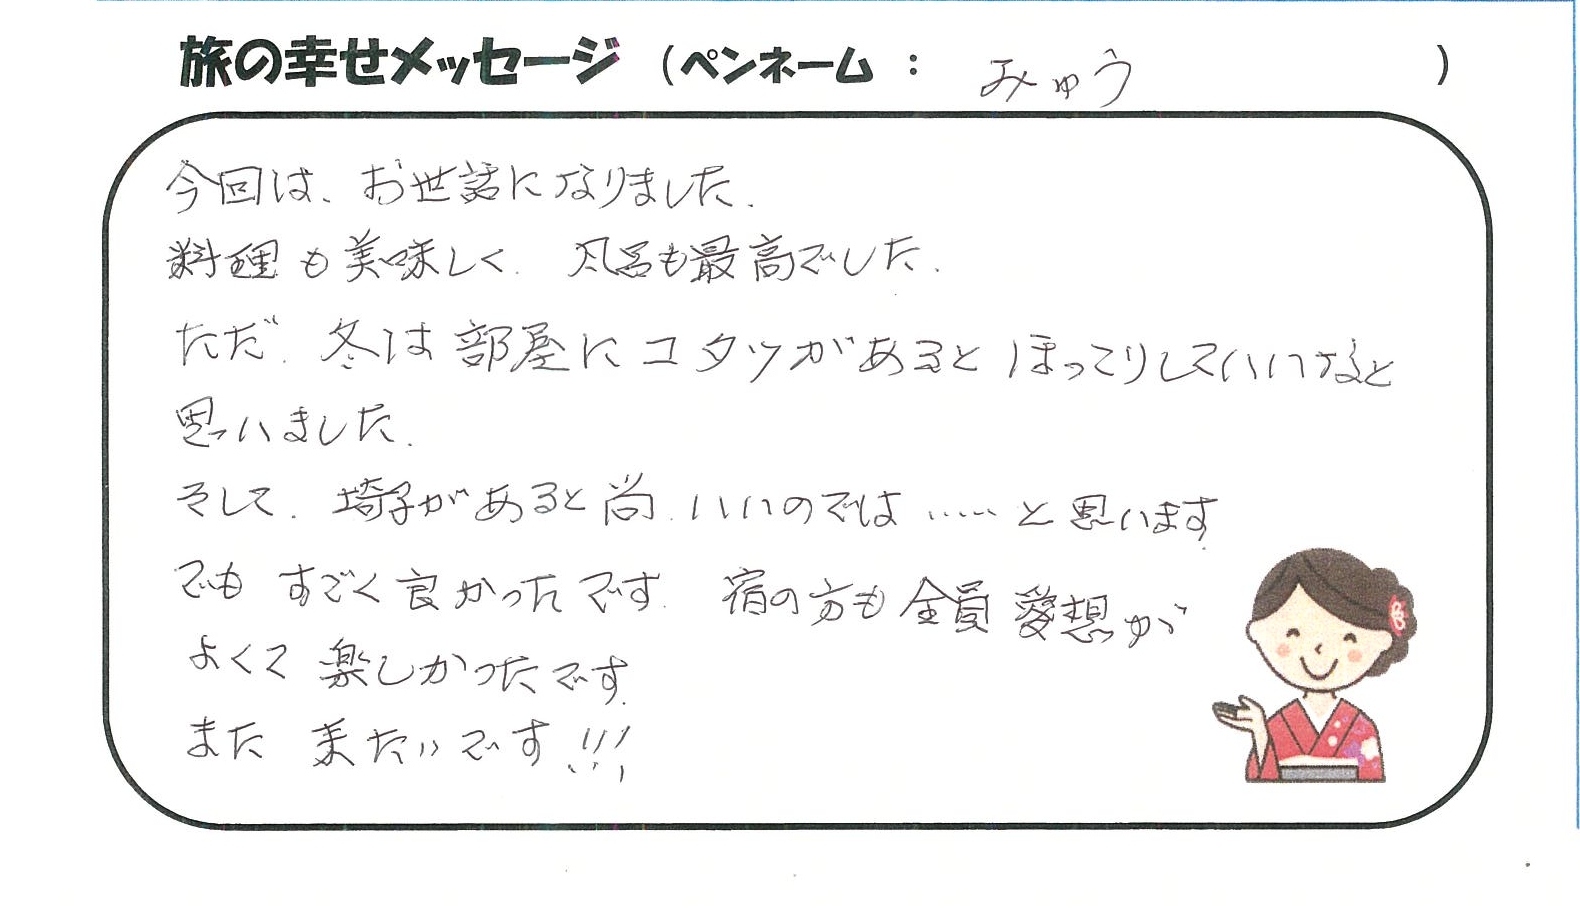 旅の幸せメッセージ (ペンネーム : みゅう )
今回は、お世話になりました.
料理も美味しく. 風呂も最高でした.
ただ. 冬は部屋にコタツがあるとほってりしていいなと
思いました.
そして. 椅子があると尚.いいのでは……と思います
でも すごく良かったです. 宿の方も全員愛想が
よくて 楽しかったです.
また 来たいです!!!